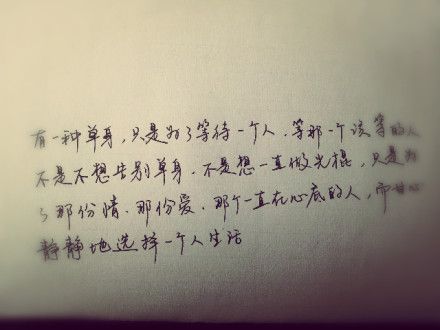 有一种单身，只是为了等待一个人、等那一个该等的人
不是不想告别单身、不是想一直做光棍，只是为
了那份情、那份爱、那个一直在心底的人，而甘心
静静地选择一个人生活